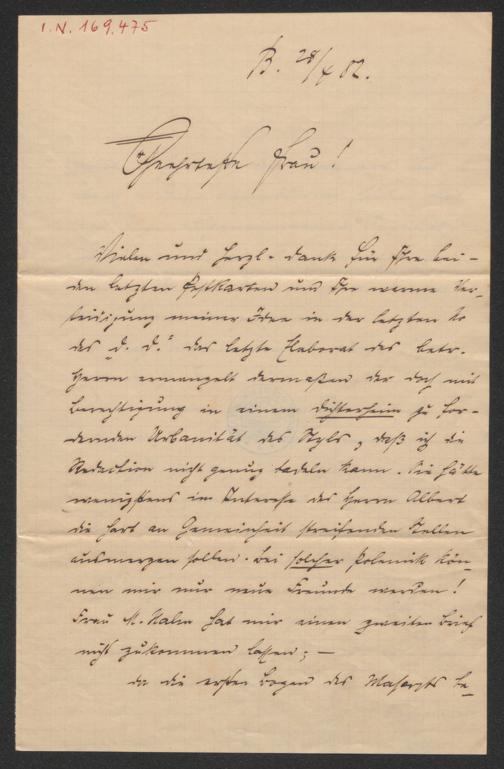 I.N. 169.475
B. 28/4 82.
Geehrteste Frau!
Vielen und herzl. Dank für Ihre bei-
den letzten Postkarten und Ihre warme Ver-
teidigung meiner Idee in der letzten No
des „D. D." Das letzte Elaborat des betr.
Herrn ermangelt dermaßen der doch mit
Berechtigung in einem Dichterheim zu for-
dernden Urbanität des Styls, daß ich die
Redaction nicht genug tadeln kann. Sie hätte
wenigstens im Interesse des Herrn Albert
die hart an Gemeinheit streifenden Stellen
ausmerzen sollen. Bei solcher Polemik kön-
nen mir nur neue Freunde werden!
Frau M. Halm hat mir einen zweiten Brief
nicht zukommen lassen; —
Da die ersten Bogen des be-